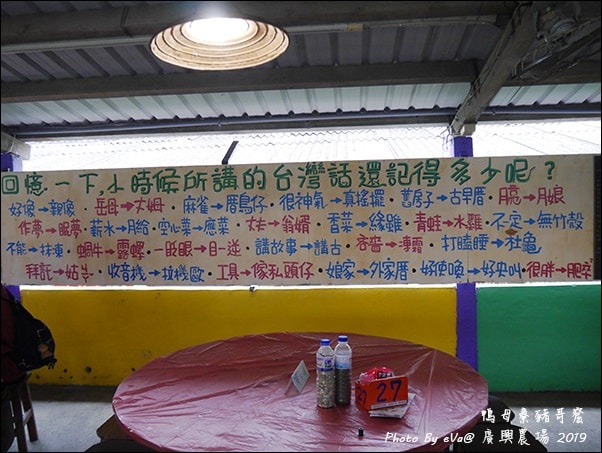 回憶一下,小時候所講的台灣話還記得多少呢？
好像→親像·岳母→丈姆·麻雀→厝鳥仔·很神氣→真搖擺·舊房子→古早厝·月亮→月娘
作夢→眠夢·薪水→月給·空心菜→應菜·丈夫→翁婿·香菜→緣雖·青蛙→水雞·不安→無竹殼
不能→抹東·蝸牛→露螺·一眨眼→目一逆·講故事→講古·香菇→凍霜·打瞌睡→杜龜
拜託→姑 收音機→拉機歐·工具→傢私頭仔·娘家→外家厝·好使喚→好央叫·很胖→肥卒
27
鴿母寮豬哥窟
Photo By eVa@ 廣興農場 2019